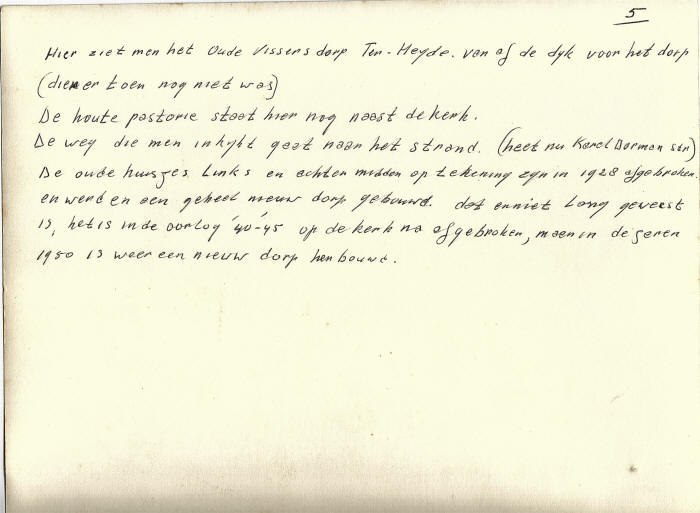 5
Hier ziet men het Oude Vissers dorp Ter-Heyde. van af de dyk voor het dorp
(die er toen nog niet was)
De houte pastorie staat hier nog naast de kerk.
De weg die men inkykt gaat naar het strand. (heet nu Karel Dorman str)
De oude huisjes Links en achter midden op tekening zyn in 1928 afgebroken.
en werd er een geheel nieuw dorp gebouwd. dat er niet Lang geweest
is, het is in de oorlog '40-'45 op de kerk na afgebroken, maar in de jaren
1950 is weer een nieuw dorp herbouwt.